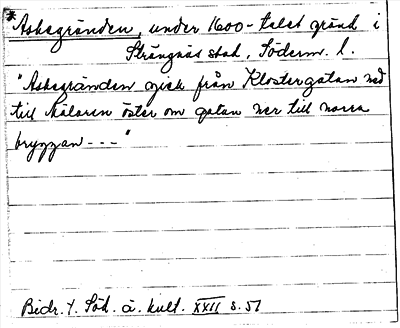 *Askegränden, under 1600-talet gränd i
Strängnäs stad, Söderm. l.
"Askegränden gick från Klostergatan ned
till Mälaren öster om gatan ner till norra
bryggan - - - "
Bidr. t. Söd. ä. kult. XXII s. 51